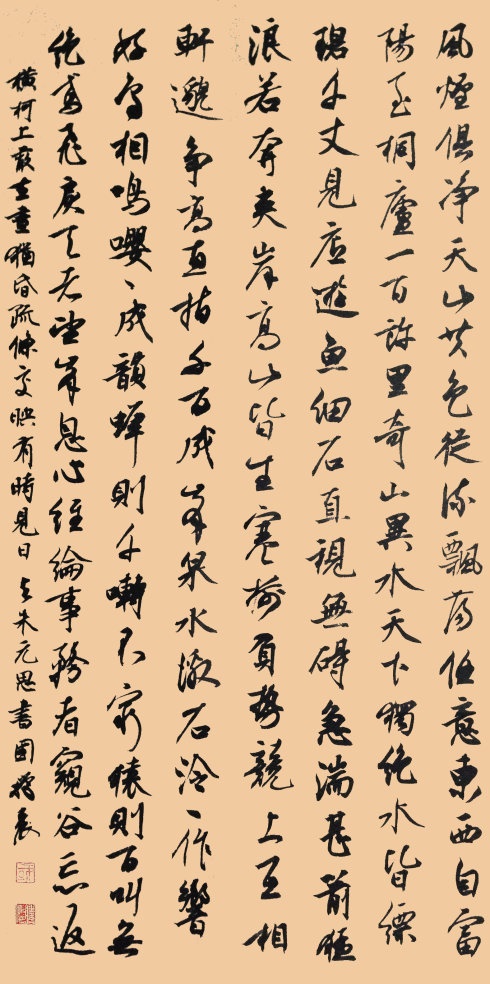 風煙俱淨天山共色從流飄蕩任意東西自富
陽至桐廬一百許里奇山異水天下獨絕水皆縹
碧千丈見底遊魚細石直視無礙急湍甚箭猛
浪若奔夾岸高山皆生寒樹負勢競上互相
軒邈爭高直指千百成峯泉水激石泠々作響
好鳥相鳴嚶々成韻蟬則千囀不窮猿則百叫無
絕鳶飛戾天者望峯息心經綸事務者窺谷忘返
橫柯上蔽在晝猶昏疏條交映有時見日 与朱元思書